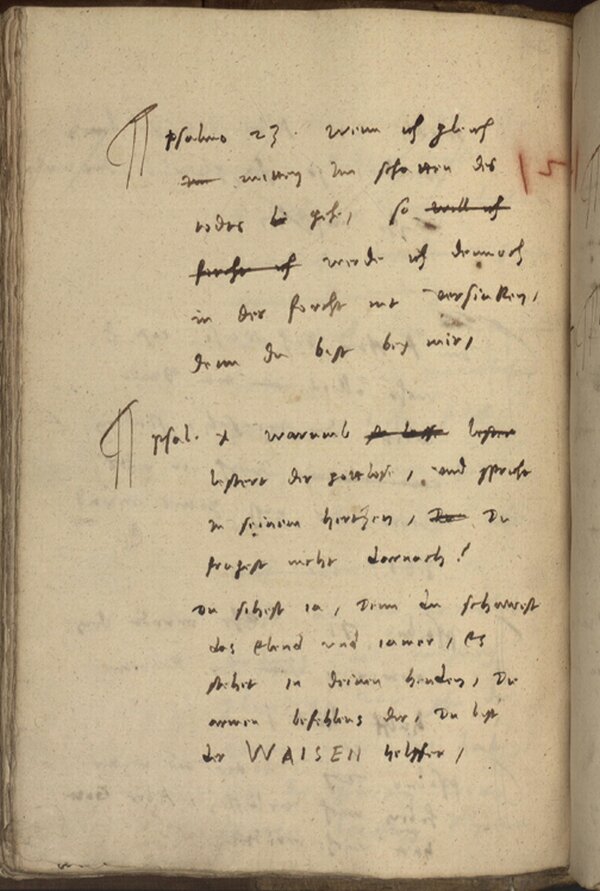 ¶ psalmo 23. wenn ich gleich
mitten im schatten des
todes gehe, so will ich
forcht ich werde ich dennoch
in der forcht nit versinken,
denn du best bey mir,
¶ psal. x warumb lester
lestert der gottlose, und spricht
in seinem hertzen, Du Du
fragest nicht darnach?
Du sihest ia, Denn du schawest
das elend und iamer, es
stehet in deinen henden, Die
armen befehlens dir, Du best
der WAISEN helffer,